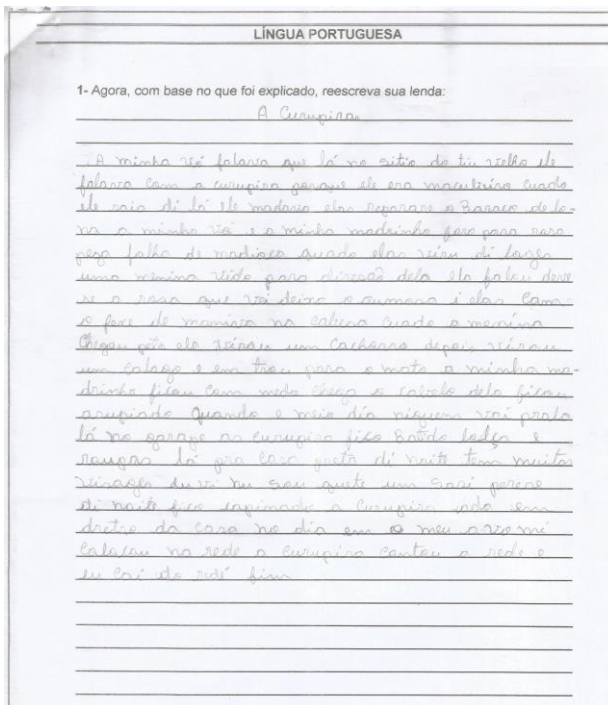 LÍNGUA PORTUGUESA
1- Agora, com base no que foi explicado, reescreva sua lenda:
A Curupira
A minha vó falava que lá no sitio do tiu velho ele
falava com a curupira porque ele era macubeiro cuado
ele saia di lá ele madava elas reparare o Baraco de lo-
na a minha vó e a minha madrinha foro para rosa
pega folha de madioca quado elas viru di loge
uma menina vido para direção dela ela falou deve
se a rosa que vai deixa o aumoso i elas
o fexe de maniva na cabesa cuado a menina
chegou peto ela virou um cachorro depois virou
um calago e em trou para o mato a minha ma-
drinha ficou com medo chega o cabelo dela ficou
arupiado quando e meio dia niguem vai prala
lá no garape as curupira fica Batido
lá pra casa di noite tem muitas
visages um Sasi perere
di noite fica a curupira em
dretro da casa no dia em o meu avo mi
calacou na rede a curupira cantou a rede e
eu cai da redé fim